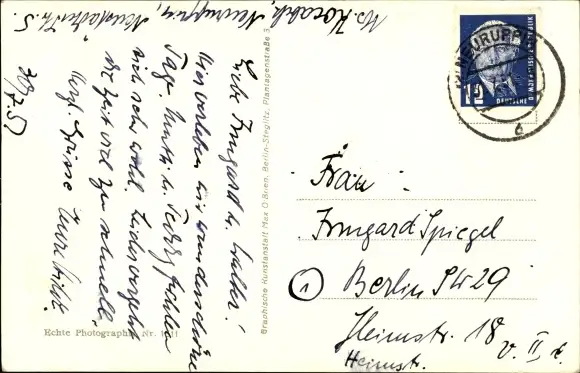 Liebe Irmgard u. Walter!
Hier verleben wir wunderschöne
Tage. Mutti u. Teddy fühlen
sich sehr wohl. Leider vergeht
die Zeit viel zu schnell.
Herzl. Grüsse
30/7.51
Neuruppin, Neustädter Str. 5.
Frau
Irmgard Spiegel
① Berlin SW 29
Heimstr. 18 v. II r.
Heimstr.
NEURUPPIN
b
12
DEUTSCHE
Graphische Kunstanstalt Max O'Brien, Berlin-Steglitz, Plantagenstraße 3
Echte Photographie Nr.